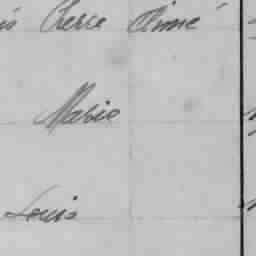 Pierre Aimé
Mario
Louis